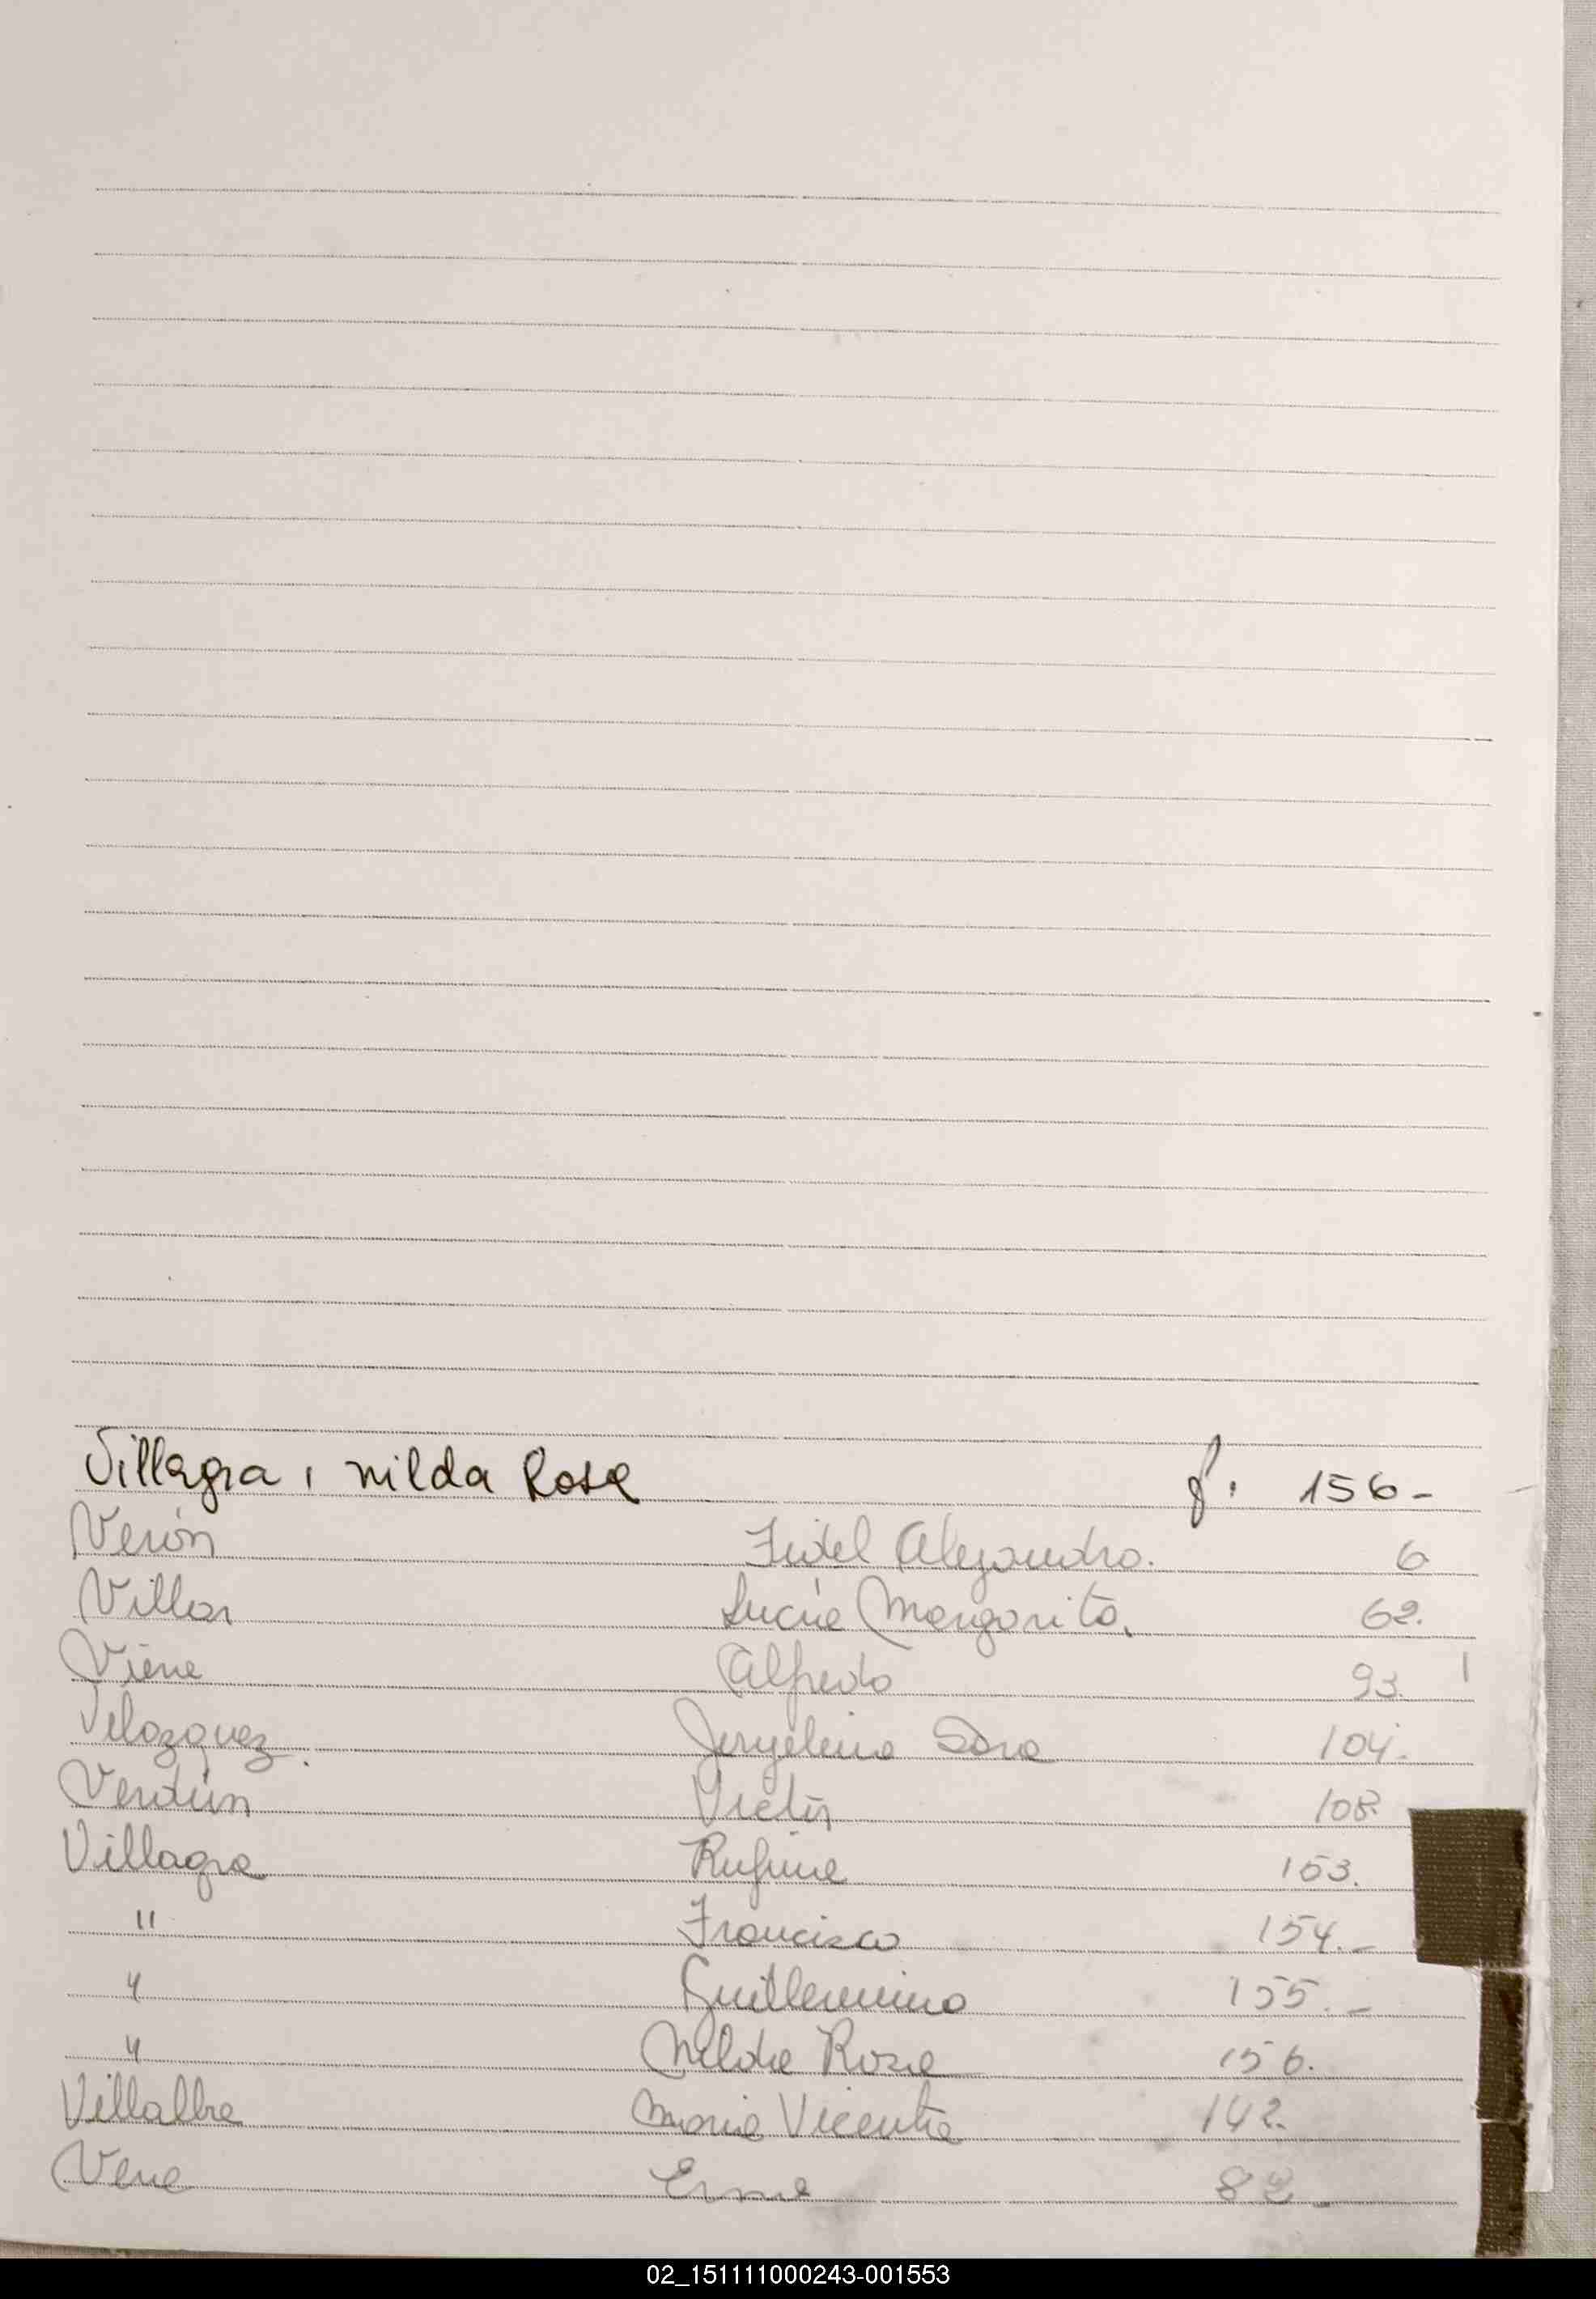 Villagra, Nilda Rosa f. 156-
Verón Fidel Alejandro. 6
Villar Lucía Margarita. 62.
Viena Alfredo 93.
Velazquez. Dora 104.-
Verdún Victor 108.
Villagra Rufina 153.
" Francisco 154.-
" Guillermina 155.-
" Nilda Rosa 156.
Villalba Maria Vicenta 142.
Vera Erma 82-
02_151111000243-001553